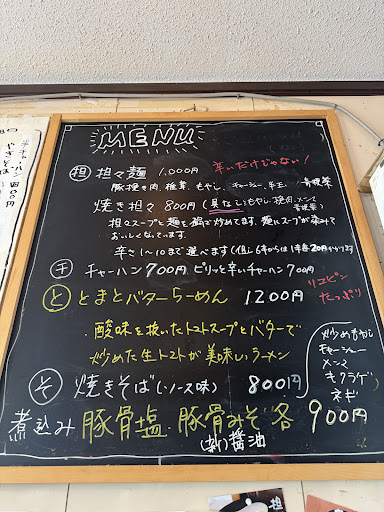 MENU
担 担々麺 1,000円 辛いだけじゃない!
豚挽き肉、椎茸、もやし、チャーシュー、辛玉、青梗菜
焼き担々 800円 (具なし)もやし、挽肉、メンマ
青梗菜
担々スープと麺を鍋で炒めてます。麺にスープが染みて
おいしくなっています。
辛さ1〜10まで選べます(但し6辛からは1辛各20円かかります
チ チャーハン700円 ピリッと辛いチャーハン700円
と とまとバターらーめん 1200円
リコピン
たっぷり
酸味を抜いたトマトスープとバターで
炒めた生トマトが美味しいラーメン
そ 焼きそば(ソース味) 800円
炒めもやし
チャーシュー
メンマ
キクラゲ
ネギ
煮込み 豚骨塩、豚骨みそ 各900円
(新)醤油
半チャーハン
担